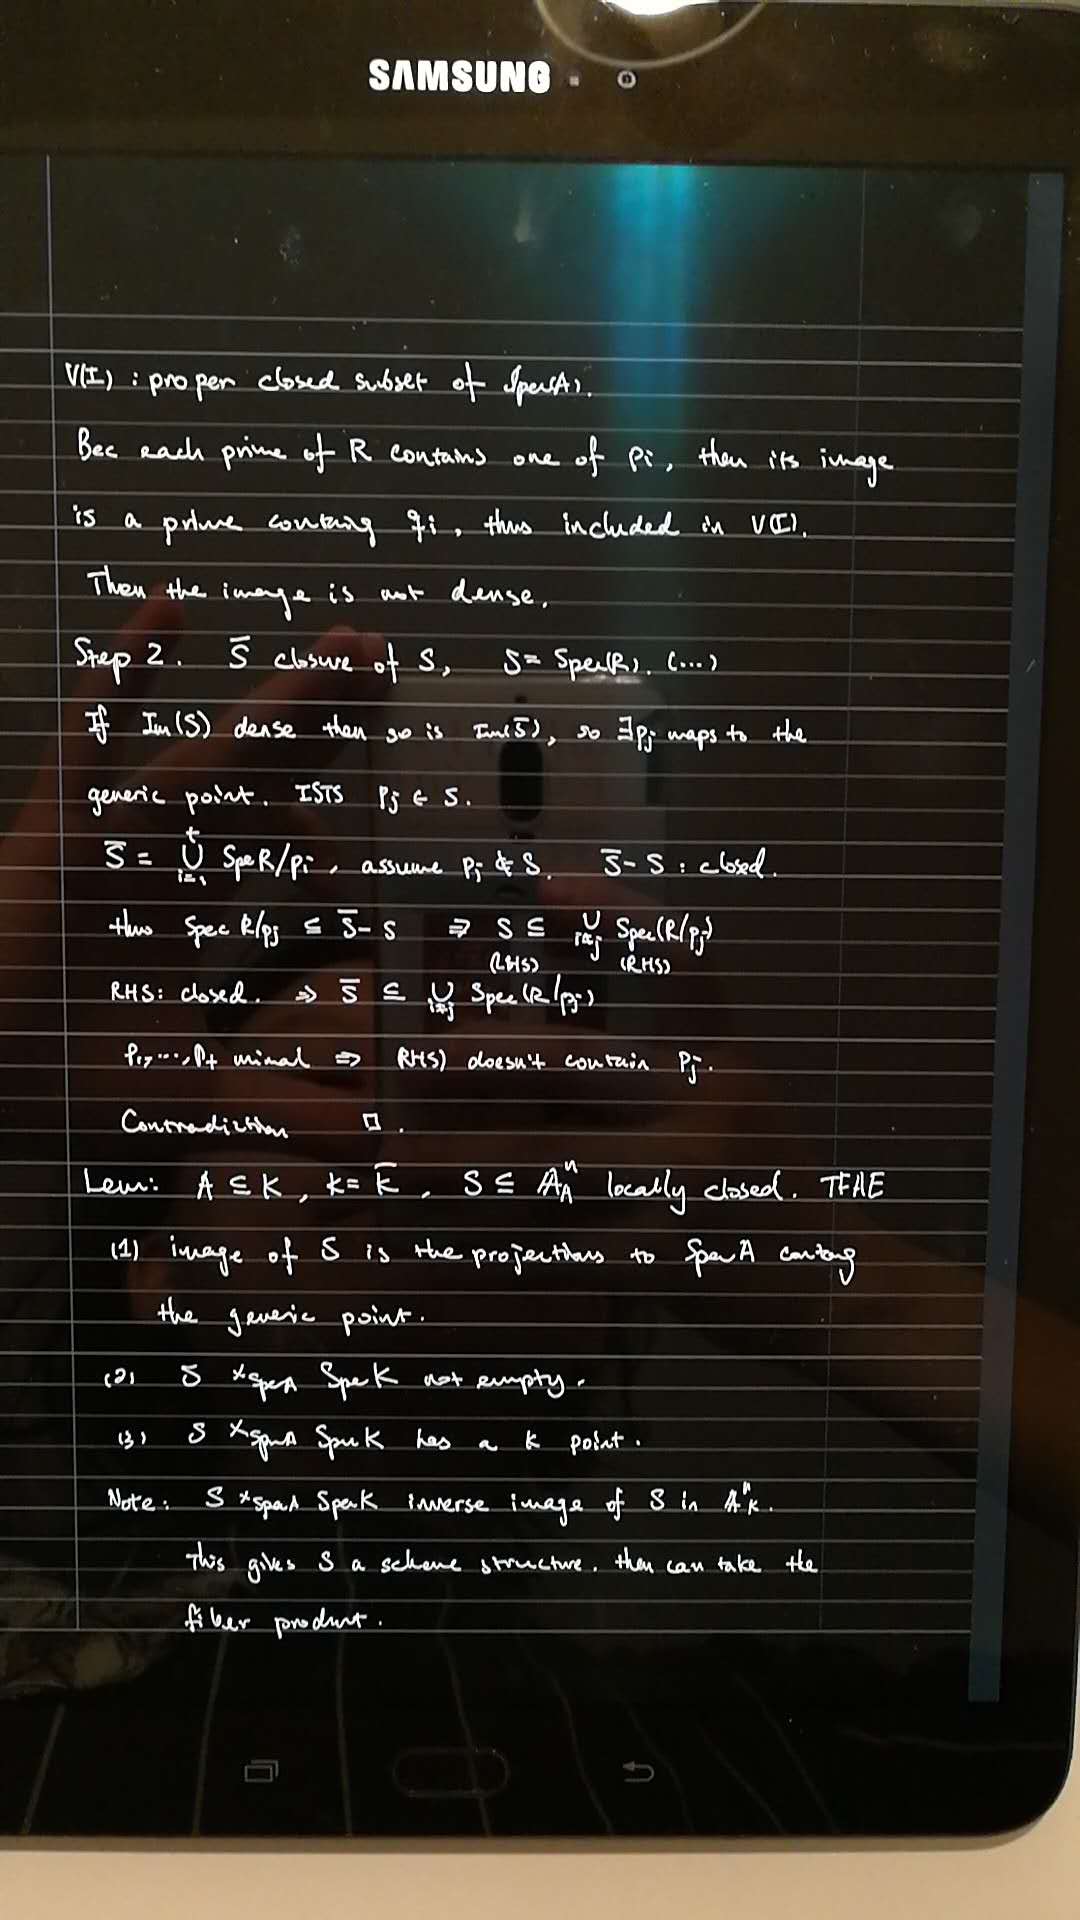 SAMSUNG
V(I) : proper closed subset of Spec(A).
Bec each prime of R contains one of pi, then its image
is a prime containg qi, thus included in V(I).
Then the image is not dense.
Step 2. S̄ closure of S, S̄ = Spec(R). (...)
If Im(S) dense then so is Im(S̄), so ∃pj maps to the
generic point. ISTS Pj ∈ S.
S̄ = ⋃_{i=1}^{t} Spec R/pi, assume Pj ∉ S. S̄-S : closed.
thus Spec R/pj ⊆ S̄-S ⇒ S ⊆ ⋃_{i≠j} Spec(R/pj)
(LHS) (RHS)
RHS: closed. ⇒ S̄ ⊆ ⋃_{i≠j} Spec(R/pj)
P1,...,Pt minimal ⇒ RHS) doesn't contain Pj.
Contradiction □.
Lem: A ⊆ K, K=K̄, S ⊆ 𝔸ⁿ_A locally closed. TFAE
(1) image of S is the projections to Spec A containg
the generic point.
(2) S ×_{Spec A} Spec K not empty.
(3) S ×_{Spec A} Spec K has a K point.
Note: S ×_{Spec A} Spec K inverse image of S in 𝔸ⁿ_K.
This gives S a scheme structure. then can take the
fiber product.